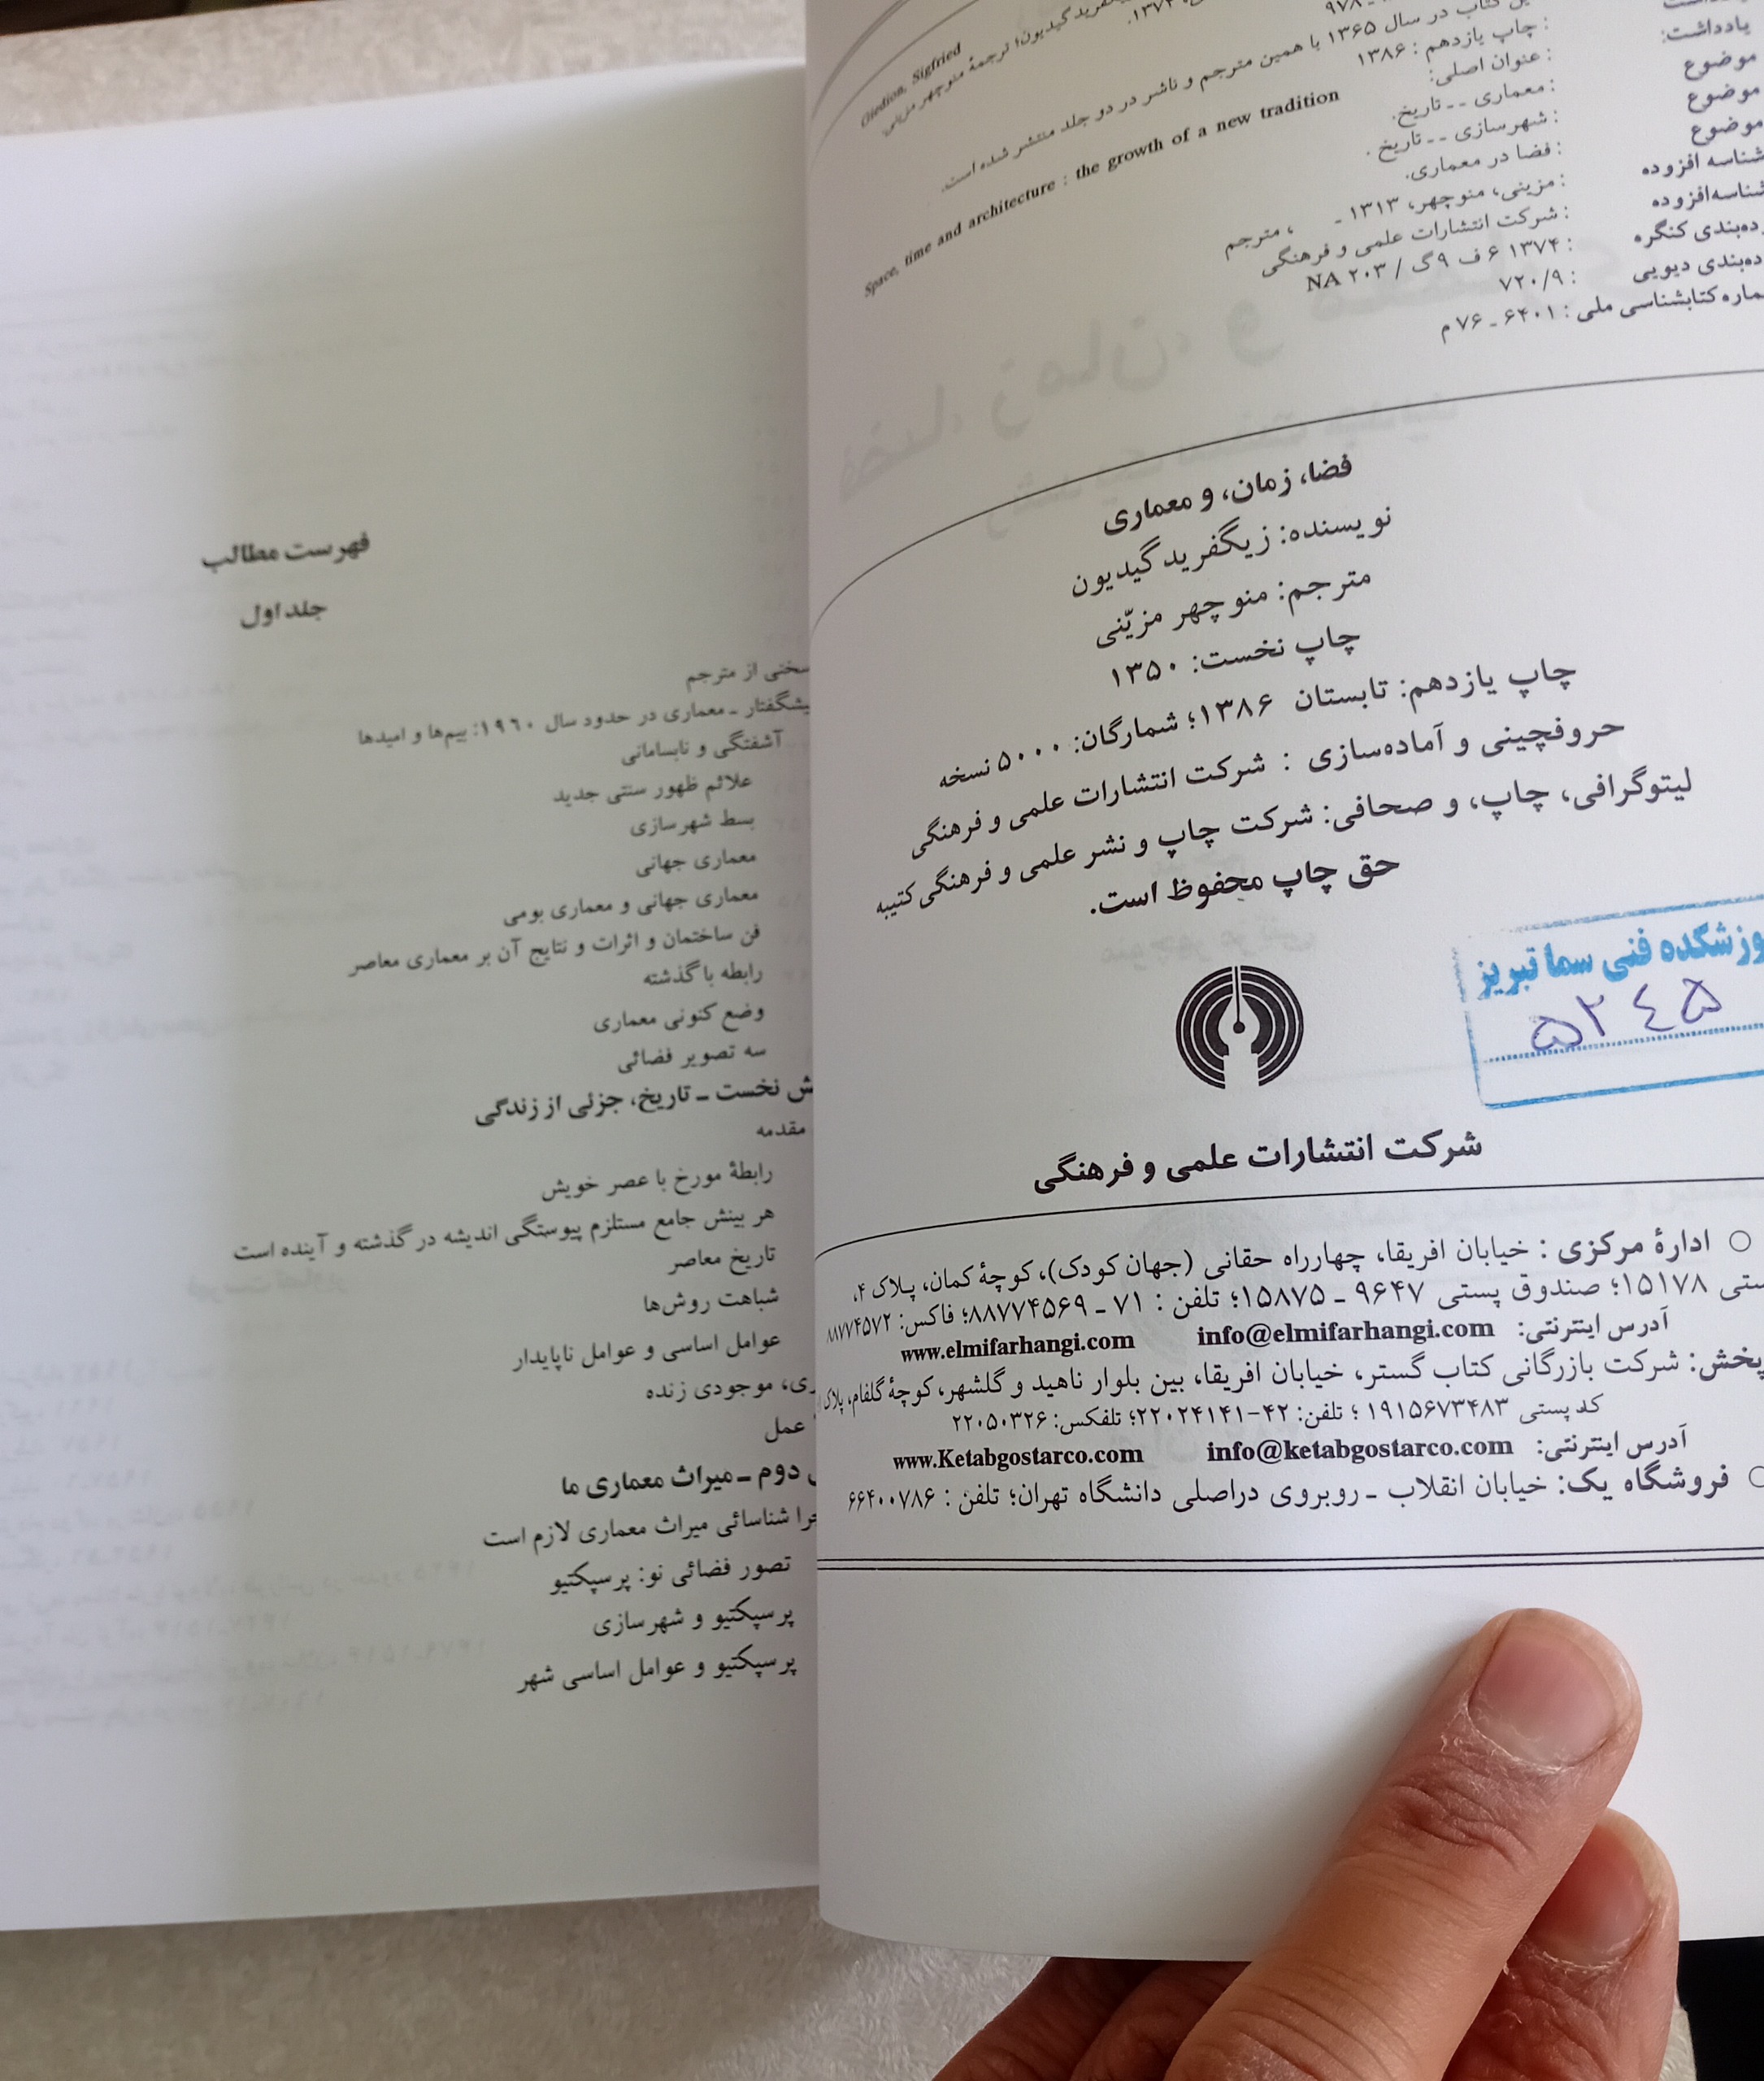 Giedion, Sigfried
گیدیون؛ ترجمهٔ منوچهر مزینی.
کتاب در سال ۱۳۶۵ با همین مترجم و ناشر در دو جلد منتشر شده است.
یادداشت: : چاپ یازدهم : ۱۳۸۶
: عنوان اصلی:
Space, time and architecture : the growth of a new tradition
موضوع : معماری -- تاریخ.
موضوع : شهرسازی -- تاریخ.
موضوع : فضا در معماری.
شناسه افزوده : مزینی، منوچهر، ۱۳۱۳ - ، مترجم
شناسه‌افزوده : شرکت انتشارات علمی و فرهنگی
ده‌بندی کنگره : ۱۳۷۴ ۶ ف ۹ گ / NA ۲۰۳
ده‌بندی دیویی : ۷۲۰/۹
ماره کتابشناسی ملی : ۶۴۰۱ - ۷۶ م
فضا، زمان، و معماری
نویسنده: زیگفرید گیدیون
مترجم: منوچهر مزیّنی
چاپ نخست: ۱۳۵۰
چاپ یازدهم: تابستان ۱۳۸۶؛ شمارگان: ۵۰۰۰ نسخه
حروفچینی و آماده‌سازی : شرکت انتشارات علمی و فرهنگی
لیتوگرافی، چاپ، و صحافی: شرکت چاپ و نشر علمی و فرهنگی کتیبه
حق چاپ محفوظ است.
وزشکده فنی سما تبریز
۵۲۴۵
شرکت انتشارات علمی و فرهنگی
○ ادارهٔ مرکزی : خیابان افریقا، چهارراه حقانی (جهان کودک)، کوچهٔ کمان، پلاک ۴،
ستی ۱۵۱۷۸؛ صندوق پستی ۹۶۴۷ - ۱۵۸۷۵؛ تلفن : ۷۱ - ۸۸۷۷۴۵۶۹؛ فاکس: ۸۸۷۷۴۵۷۲
آدرس اینترنتی: info@elmifarhangi.com www.elmifarhangi.com
پخش: شرکت بازرگانی کتاب گستر، خیابان افریقا، بین بلوار ناهید و گلشهر، کوچهٔ گلفام، پلاک
کد پستی ۱۹۱۵۶۷۳۴۸۳ ؛ تلفن: ۴۲-۲۲۰۲۴۱۴۱؛ تلفکس: ۲۲۰۵۰۳۲۶
آدرس اینترنتی: info@ketabgostarco.com www.Ketabgostarco.com
○ فروشگاه یک: خیابان انقلاب - روبروی دراصلی دانشگاه تهران؛ تلفن : ۶۶۴۰۰۷۸۶
فهرست مطالب
جلد اول
سخنی از مترجم
یشگفتار - معماری در حدود سال ۱۹۶۰: بیم‌ها و امیدها
آشفتگی و نابسامانی
علائم ظهور سنتی جدید
بسط شهرسازی
معماری جهانی
معماری جهانی و معماری بومی
فن ساختمان و اثرات و نتایج آن بر معماری معاصر
رابطه با گذشته
وضع کنونی معماری
سه تصویر فضائی
ش نخست - تاریخ، جزئی از زندگی
مقدمه
رابطهٔ مورخ با عصر خویش
هر بینش جامع مستلزم پیوستگی اندیشه در گذشته و آینده است
تاریخ معاصر
شباهت روش‌ها
عوامل اساسی و عوامل ناپایدار
ری، موجودی زنده
عمل
دوم - میراث معماری ما
چرا شناسائی میراث معماری لازم است
تصور فضائی نو: پرسپکتیو
پرسپکتیو و شهرسازی
پرسپکتیو و عوامل اساسی شهر